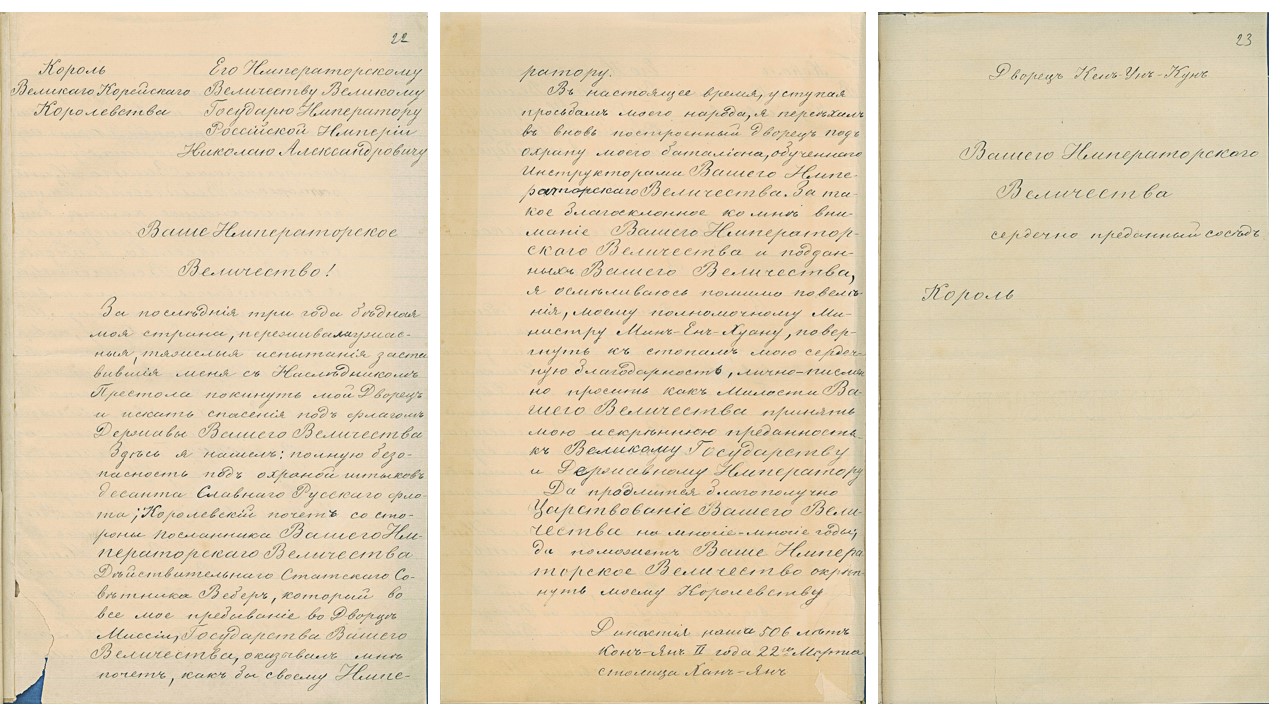 22
Король
Великаго Корейскаго
Королевства
Его Императорскому
Величеству Великому
Государю Императору
Россiйской Имперiи
Николаю Александровичу
Ваше Императорское
Величество!
За послѣднiя три года бѣдная
моя страна, переживала ужас-
ныя, тяжелыя испытанiя заста
вившiя меня съ Наслѣдникомъ
Престола покинуть мой Дворецъ
и искать спасенiя подъ флагомъ
Державы Вашего Величества
Здѣсь я нашелъ: полную безо-
пасность подъ охраной штыковъ
десанта Славнаго Русскаго фло-
та; Королевскiй почетъ со сто-
роны посланника Вашего Им-
ператорскаго Величества
Дѣйствительнаго Статскаго Со-
вѣтника Веберъ, который во
все мое пребыванiе во Дворцѣ
Миссiи, Государства Вашего
Величества, оказывалъ мнѣ
почетъ, какъ бы своему Импе-
ратору.
Въ настоящее время, уступая
просьбамъ моего народа, я переѣхалъ
въ вновь построенный дворецъ подъ
охрану моего баталiона, обученнаго
Инструкторами Вашего Импе-
раторскаго Величества. За та-
кое благосклонное ко мнѣ вни-
манiе Вашего Император-
скаго Величества и поддан-
ныхъ Вашего Величества,
я осмѣливаюсь помимо повелѣ-
нiя, моему полномочному Ми-
нистру Минъ-Енъ-Хуану, повер-
гнуть къ стопамъ мою сердеч-
ную благодарность, лично-письмен
но просить какъ Милости Ва-
шего Величества принять
мою искрѣннюю преданность
къ Великому Государству
и Державному Императору
Да продлится благополучно
Царствованiе Вашего Вели-
чества на многiе-многiе годы,
да поможетъ Ваше Импера
торское Величество окрѣп-
нуть моему Королевству
Династiя наша 506 лѣтъ
Конъ-Янъ II года 22го Марта
столица Ханъ-Янъ
23
Дворецъ Кенъ-Унъ-Кунъ
Вашего Императорского
Величества
сердечно преданный сосѣдъ
Король